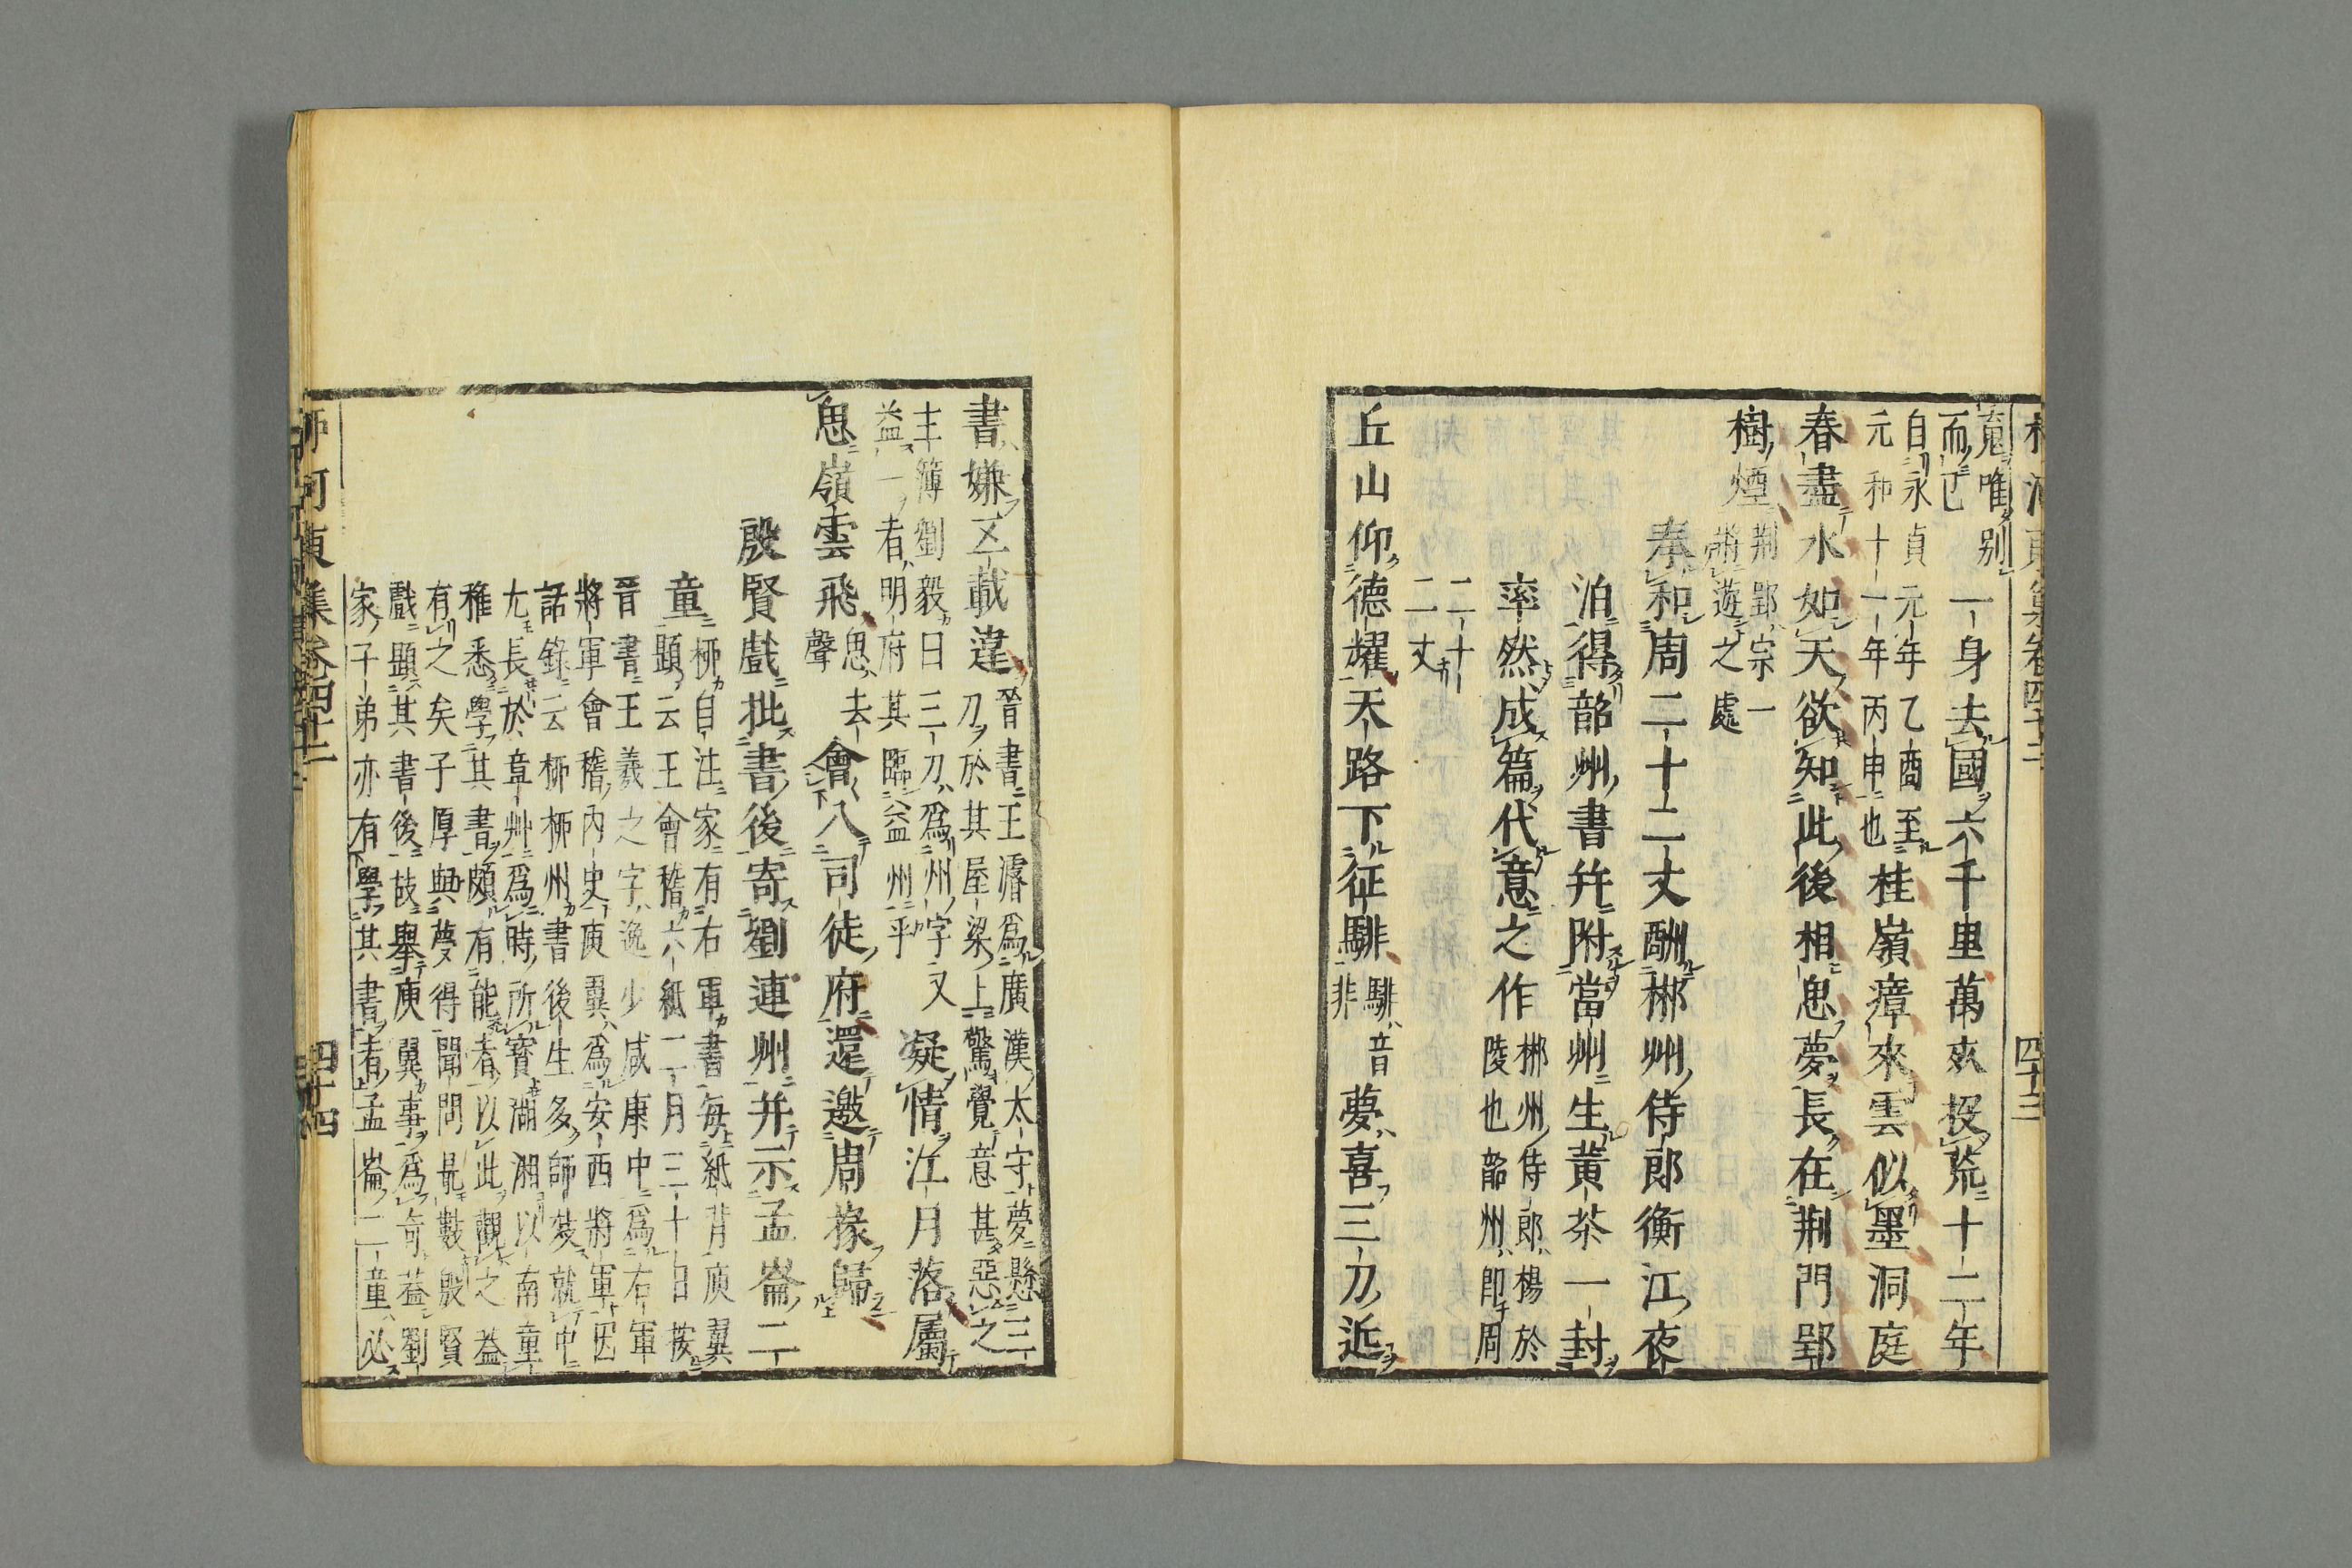 柳河東集卷四十二 四十三
寃唯别
而已
一身去國六千里萬死投荒十二年
自永貞元年乙酉至
元和十一年丙申也
桂嶺瘴來雲似墨洞庭
春盡水如天欲知此後相思夢長在荆門郢
樹煙
荆郢宗一
將遊之處
奉和周二十二丈酬郴州侍郎衡江夜
泊得韶州書幷附當州生黄茶一封
率然成篇代意之作
郴州侍郎楊於
陵也韶州即周
二十
二丈
丘山仰德耀天路下征騑
騑音
非
夢喜三刀近
書嫌五載違
晉書王濬爲廣漢太守夢懸三
刀於其屋梁上驚覺意甚惡之
主簿劉毅曰三刀爲州字又
益一者明府其臨益州乎
凝情江月落屬
思嶺雲飛
思去
聲
會入司徒府還邀周掾歸
殷賢戲批書後寄劉連州并示孟崙二
童
柳自注家有右軍書每紙背庾翼
題云王會稽六紙二月三十日按
晉書王羲之字逸少咸康中爲右軍
將軍會稽內史庾翼爲安西將軍因
話錄云柳柳州書後生多師效就中
尤長於章艸爲時所寶湖湘以南童
稚悉學其書頗有能者以此觀之益
有之矣子厚與夢得聞問最數殷賢
戲題其書後故舉庾翼事爲奇蓋劉
家子弟亦有學其書者孟崙二童必
柳河東集卷四十二 四十四